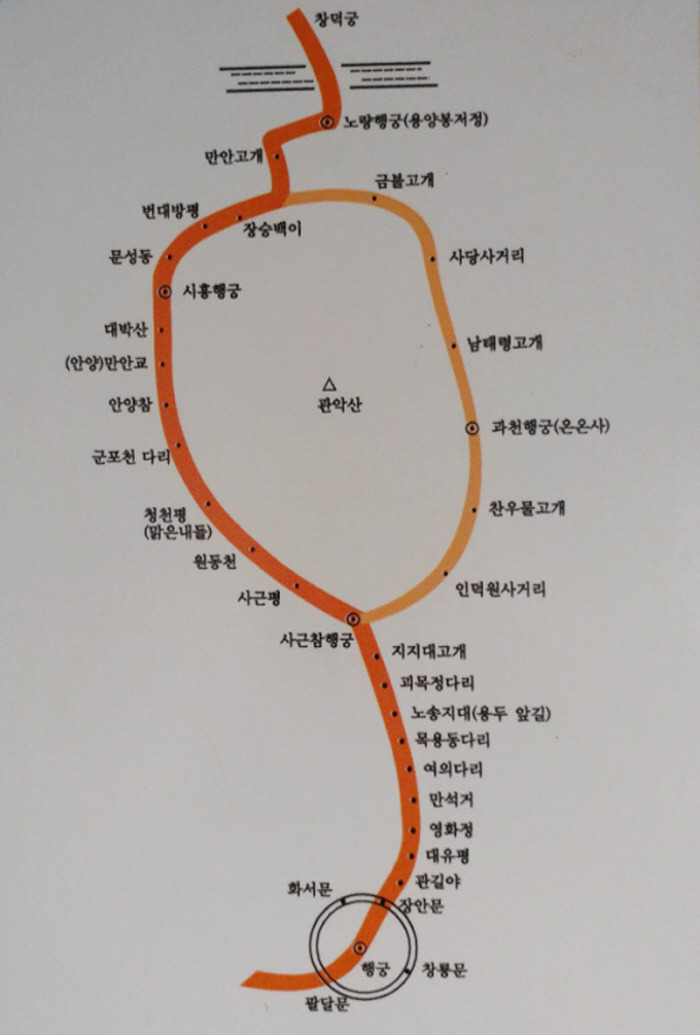 창덕궁
노량행궁(용양봉저정)
만안고개
금불고개
번대방평
장승백이
문성동
사당사거리
시흥행궁
대박산
남태령고개
(안양)만안교
관악산
안양참
과천행궁(온온사)
군포천 다리
찬우물고개
청천평
(맑은내들)
원동천
인덕원사거리
사근평
사근참행궁
지지대고개
괴목정다리
노송지대(용두 앞길)
목용동다리
여의다리
만석거
영화정
대유평
관길야
화서문
장안문
행궁
창룡문
팔달문